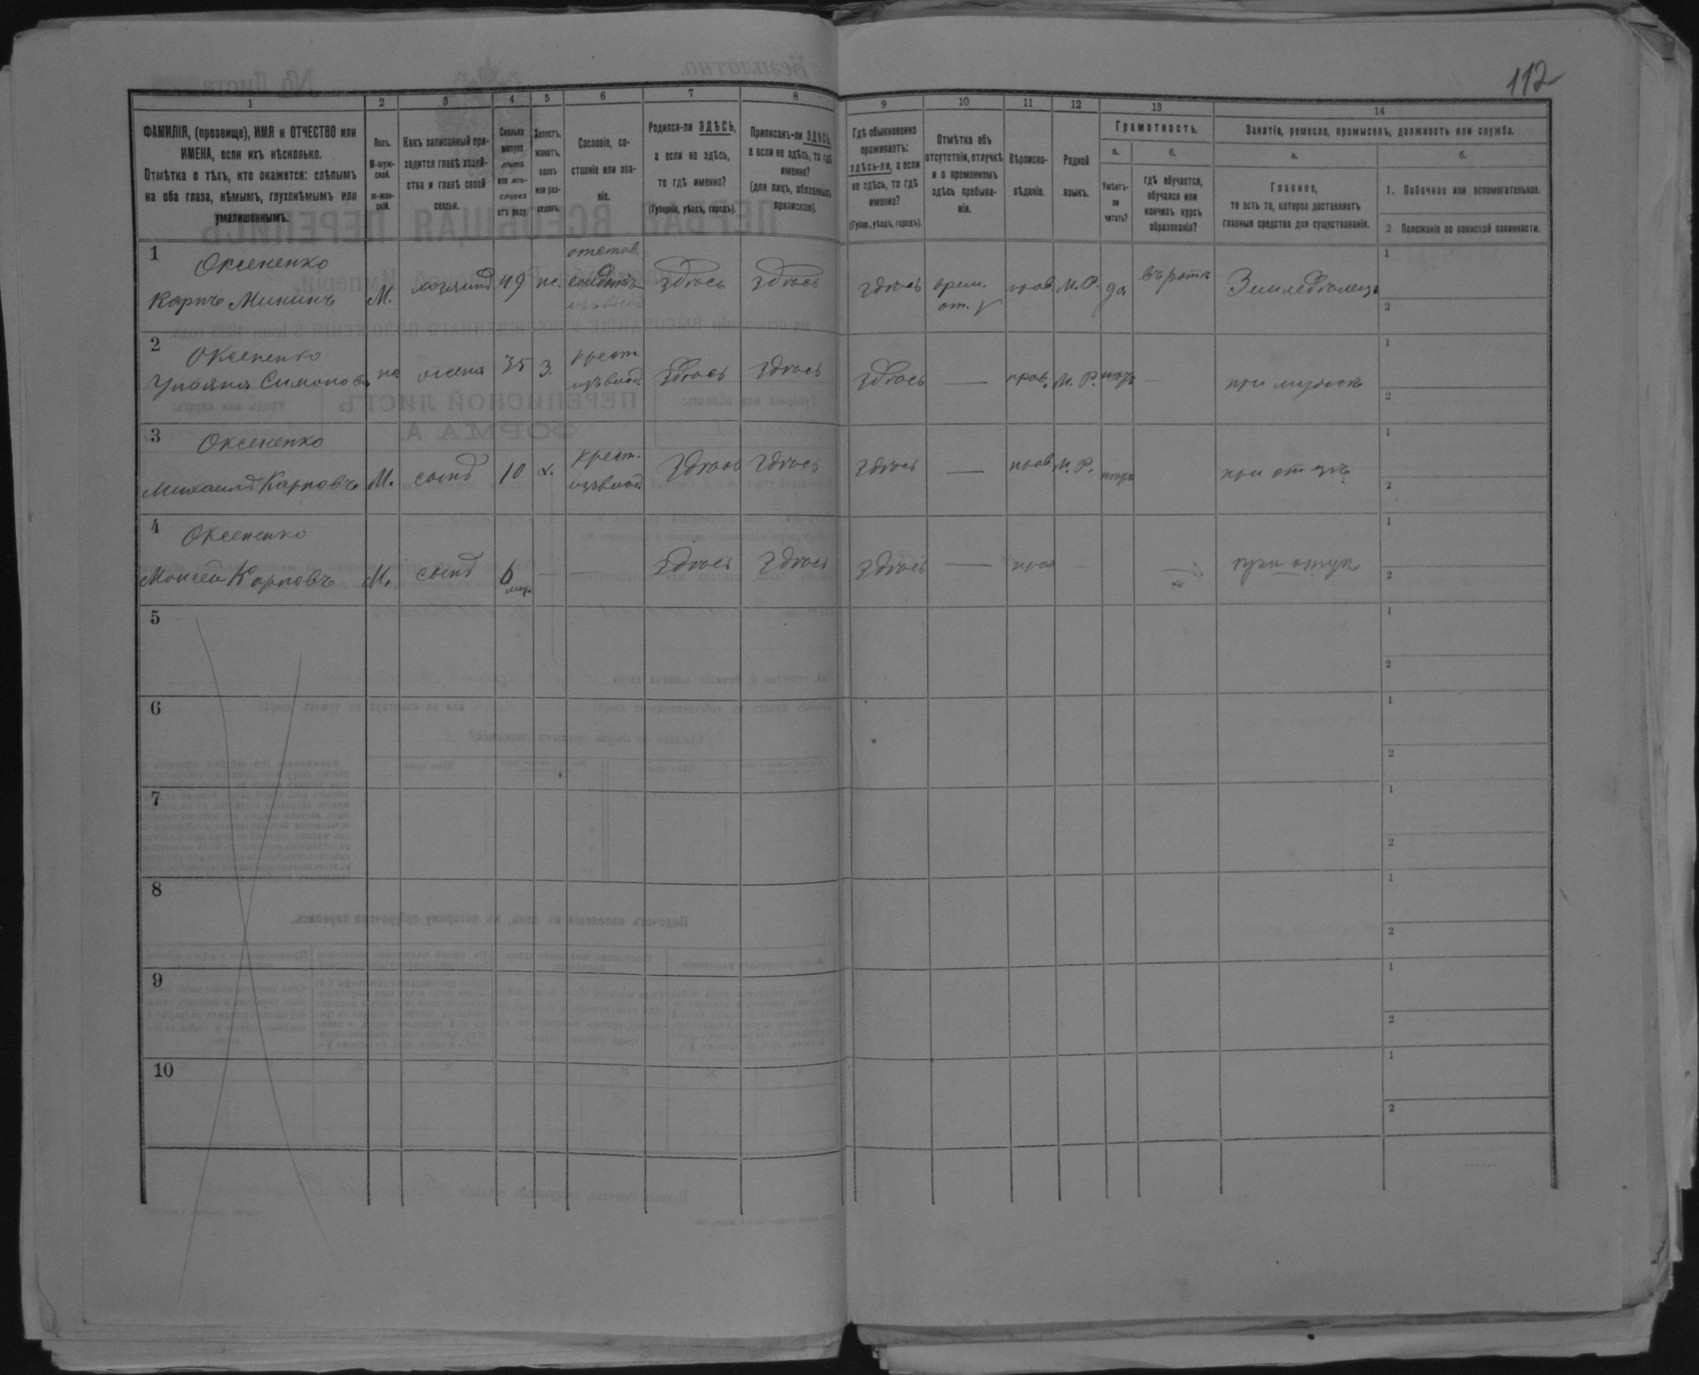 112
1 2 3 4 5 6 7 8 9 10 11 12 13 14
ФАМИЛІЯ, (прозвище), ИМЯ и ОТЧЕСТВО или
ИМЕНА, если ихъ нѣсколько.
Отмѣтка о тѣхъ, кто окажется: слѣпымъ
на оба глаза, нѣмымъ, глухонѣмымъ или
умалишеннымъ.
Полъ.
М-муж-
ской.
ж-жен-
скій.
Какъ записанный при-
ходится главѣ хозяй-
ства и главѣ своей
семьи.
Сколько
минуло
лѣтъ
или мѣ-
сяцевъ
отъ роду.
Холостъ,
женатъ,
вдовъ
или раз-
веденъ.
Сословіе, со-
стояніе или зва-
ніе.
Родился-ли ЗДѢСЬ,
а если не здѣсь,
то гдѣ именно?
(Губернія, уѣздъ, городъ).
Приписанъ-ли ЗДѢСЬ,
а если не здѣсь, то гдѣ
именно?
(для лицъ, обязанныхъ
припискою).
Гдѣ обыкновенно
проживаетъ:
здѣсь-ли, а если
не здѣсь, то гдѣ
именно?
(Губер., уѣздъ, городъ).
Отмѣтка объ
отсутствіи, отлучкѣ
и о временномъ
здѣсь пребыва-
ніи.
Вѣроиспо-
вѣданіе.
Родной
языкъ.
Грамотность.
а.
Умѣетъ-
ли
читать?
б.
гдѣ обучается,
обучался или
кончилъ курсъ
образованія?
Занятіе, ремесло, промыселъ, должность или служба.
а.
Главное,
то есть то, которое доставляетъ
главныя средства для существованія.
б.
1. Побочное или вспомогательное.
2 Положеніе по воинской повинности.
1
Оксененко
Карпъ Мининъ М. хозяинъ 49 здѣсь здѣсь здѣсь врем. прав. М.Р. да Земледѣлецъ
1
2
2
Оксененко
Ульяна Симонова жена 35 з. крест. здѣсь здѣсь здѣсь — прав. М.Р. —
1
2
3
Оксененко
Михаилъ Карповъ М. сынъ 10 х. крест. здѣсь здѣсь здѣсь — прав. М.Р. при отцѣ
1
2
4
Оксененко
Моисей Карповъ М. сынъ 6 — — здѣсь здѣсь здѣсь — прав — — при отцѣ
1
2
5
1
2
6
1
2
7
1
2
8
1
2
9
1
2
10
1
2